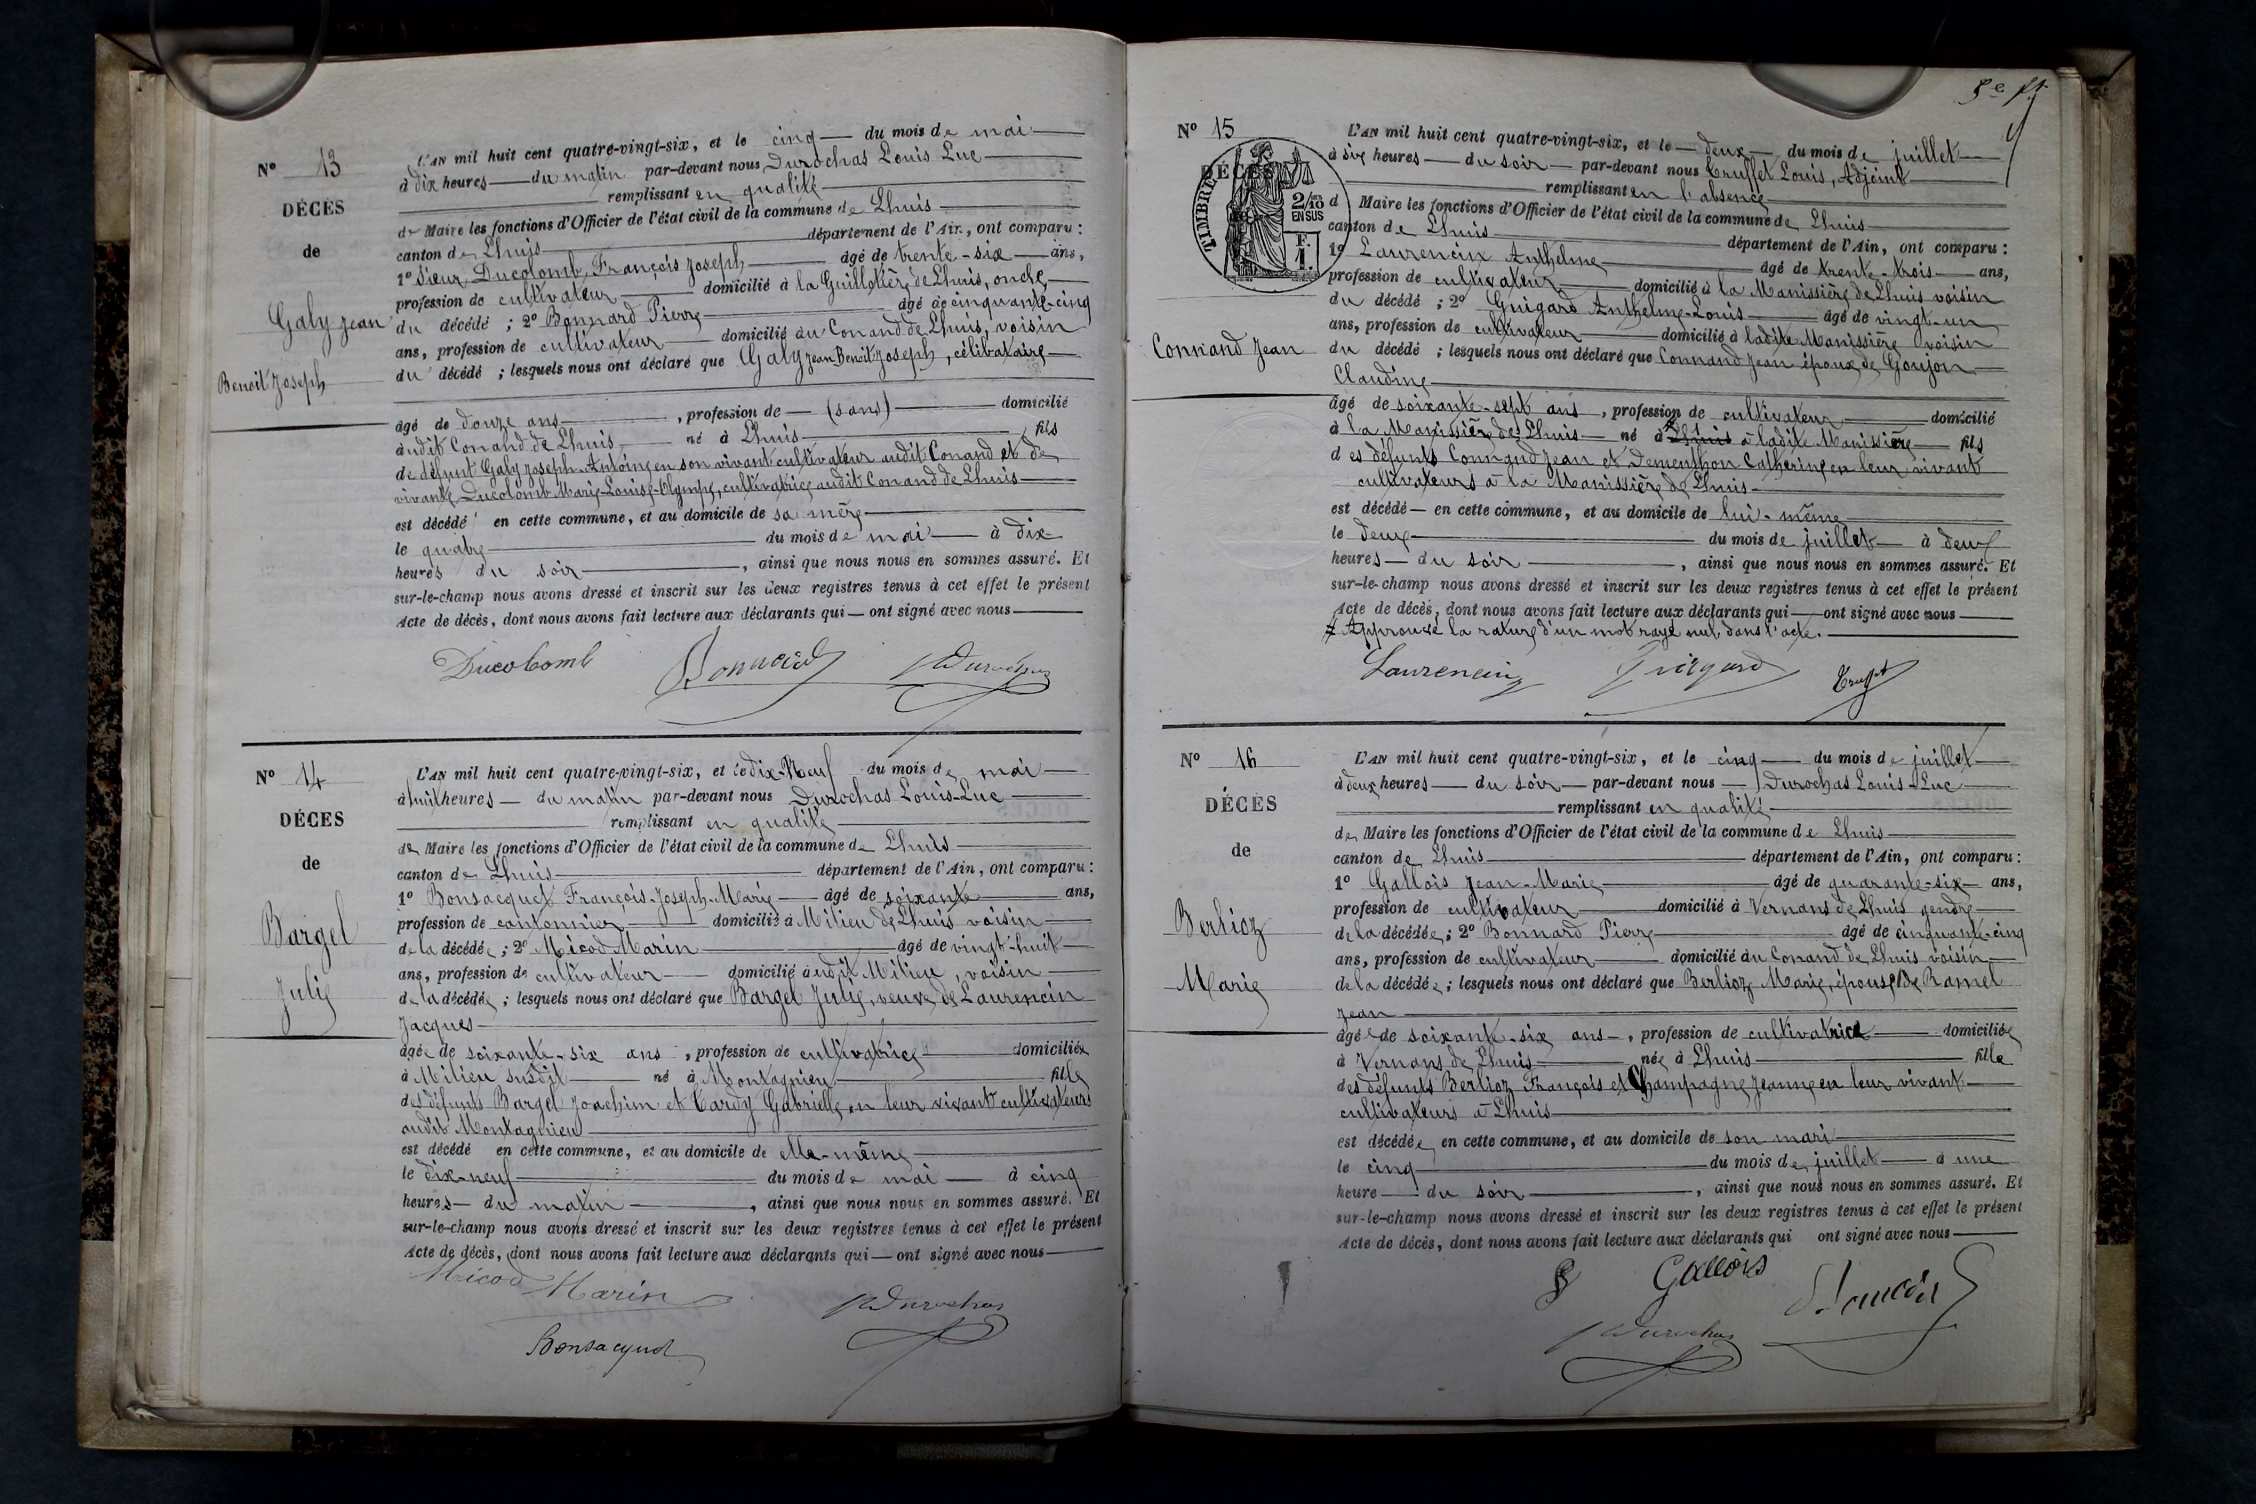 Nº 13
DÉCÈS
de
Galy Jean
Benoît Joseph
L'AN mil huit cent quatre-vingt-six, et le cinq du mois de mai
à dix heures du matin par-devant nous Durochas Louis Luc
remplissant en qualité
de Maire les fonctions d'Officier de l'état civil de la commune de Lhuis
canton de Lhuis département de l'Ain, ont comparu :
1º Sieur Ducolomb François Joseph âgé de trente-six ans,
profession de cultivateur domicilié à la Guillotière de Lhuis, oncle
du décédé ; 2º Bonnard Pierre âgé de cinquante-cinq
ans, profession de cultivateur domicilié au Conand de Lhuis, voisin
du décédé ; lesquels nous ont déclaré que Galy Jean Benoît Joseph, célibataire
âgé de douze ans, profession de (sans) domicilié
audit Conand de Lhuis né à Lhuis fils
de défunt Galy Joseph-Antoine en son vivant cultivateur audit Conand et de
vivante Ducolomb Marie-Louise-Olympe, cultivatrice audit Conand de Lhuis
est décédé en cette commune, et au domicile de sa mère
le quatre du mois de mai à dix
heures du soir, ainsi que nous nous en sommes assuré. Et
sur-le-champ nous avons dressé et inscrit sur les deux registres tenus à cet effet le présent
Acte de décès, dont nous avons fait lecture aux déclarants qui — ont signé avec nous
Ducolomb Bonnard Durochas
Nº 14
DÉCÈS
de
Bargel
Julie
L'AN mil huit cent quatre-vingt-six, et le dix-Neuf du mois de mai
à huit heures du matin par-devant nous Durochas Louis-Luc
remplissant en qualité
de Maire les fonctions d'Officier de l'état civil de la commune de Lhuis
canton de Lhuis département de l'Ain, ont comparu :
1º Bonsacquet François-Joseph-Marie âgé de soixante ans,
profession de cantonnier domicilié à Milieu de Lhuis voisin
de la décédée ; 2º Micod Marin âgé de vingt-huit
ans, profession de cultivateur domicilié audit Milieu, voisin
de la décédée ; lesquels nous ont déclaré que Bargel Julie, veuve de Laurencin
Jacques
âgée de soixante-six ans, profession de cultivatrice domiciliée
à Milieu susdit né à Montagnieu fille
des défunts Bargel Joachim et Cardy Gabrielle en leur vivant cultivateurs
audit Montagnieu
est décédé en cette commune, et au domicile de elle-même
le dix-neuf du mois de mai à cinq
heures du matin, ainsi que nous nous en sommes assuré. Et
sur-le-champ nous avons dressé et inscrit sur les deux registres tenus à cet effet le présent
Acte de décès, dont nous avons fait lecture aux déclarants qui — ont signé avec nous
Micod Marin Durochas
Bonsacquet
Nº 15
DÉCÈS
TIMBRE
2/10 EN SUS
F. 1
Connand Jean
L'AN mil huit cent quatre-vingt-six, et le deux du mois de juillet
à six heures du soir par-devant nous Truffet Louis, Adjoint
remplissant en l'absence
d Maire les fonctions d'Officier de l'état civil de la commune de Lhuis
canton de Lhuis département de l'Ain, ont comparu :
1º Laurencin Anthelme âgé de trente-trois ans,
profession de cultivateur domicilié à la Manissière de Lhuis voisin
du décédé ; 2º Guigard Anthelme-Louis âgé de vingt-un
ans, profession de cultivateur domicilié à ladite Manissière voisin
du décédé ; lesquels nous ont déclaré que Connand Jean époux de Goujon
Claudine
âgé de soixante-sept ans, profession de cultivateur domicilié
à la Manissière de Lhuis né à Lhuis à ladite Manissière fils
des défunts Connand Jean et Dementhon Catherine en leur vivant
cultivateurs à la Manissière de Lhuis
est décédé en cette commune, et au domicile de lui-même
le deux du mois de juillet à deux
heures du soir, ainsi que nous nous en sommes assuré. Et
sur-le-champ nous avons dressé et inscrit sur les deux registres tenus à cet effet le présent
Acte de décès, dont nous avons fait lecture aux déclarants qui — ont signé avec nous
Approuvé la rature d'un mot rayé nul dans l'acte.
Laurencin Guigard Truffet
Nº 16
DÉCÈS
de
Berlioz
Marie
L'AN mil huit cent quatre-vingt-six, et le cinq du mois de juillet
à deux heures du soir par-devant nous Durochas Louis-Luc
remplissant en qualité
de Maire les fonctions d'Officier de l'état civil de la commune de Lhuis
canton de Lhuis département de l'Ain, ont comparu :
1º Gallois Jean-Marie âgé de quarante-six ans,
profession de cultivateur domicilié à Vernans de Lhuis gendre
de la décédée ; 2º Bonnard Pierre âgé de cinquante-cinq
ans, profession de cultivateur domicilié au Conand de Lhuis voisin
de la décédée ; lesquels nous ont déclaré que Berlioz Marie, épouse de Ramel
Jean
âgée de soixante-six ans, profession de cultivatrice domiciliée
à Vernans de Lhuis née à Lhuis fille
des défunts Berlioz François et Champagne Jeanne en leur vivant
cultivateurs à Lhuis
est décédée en cette commune, et au domicile de son mari
le cinq du mois de juillet à une
heure du soir, ainsi que nous nous en sommes assuré. Et
sur-le-champ nous avons dressé et inscrit sur les deux registres tenus à cet effet le présent
Acte de décès, dont nous avons fait lecture aux déclarants qui ont signé avec nous
Gallois Bonnard
Durochas